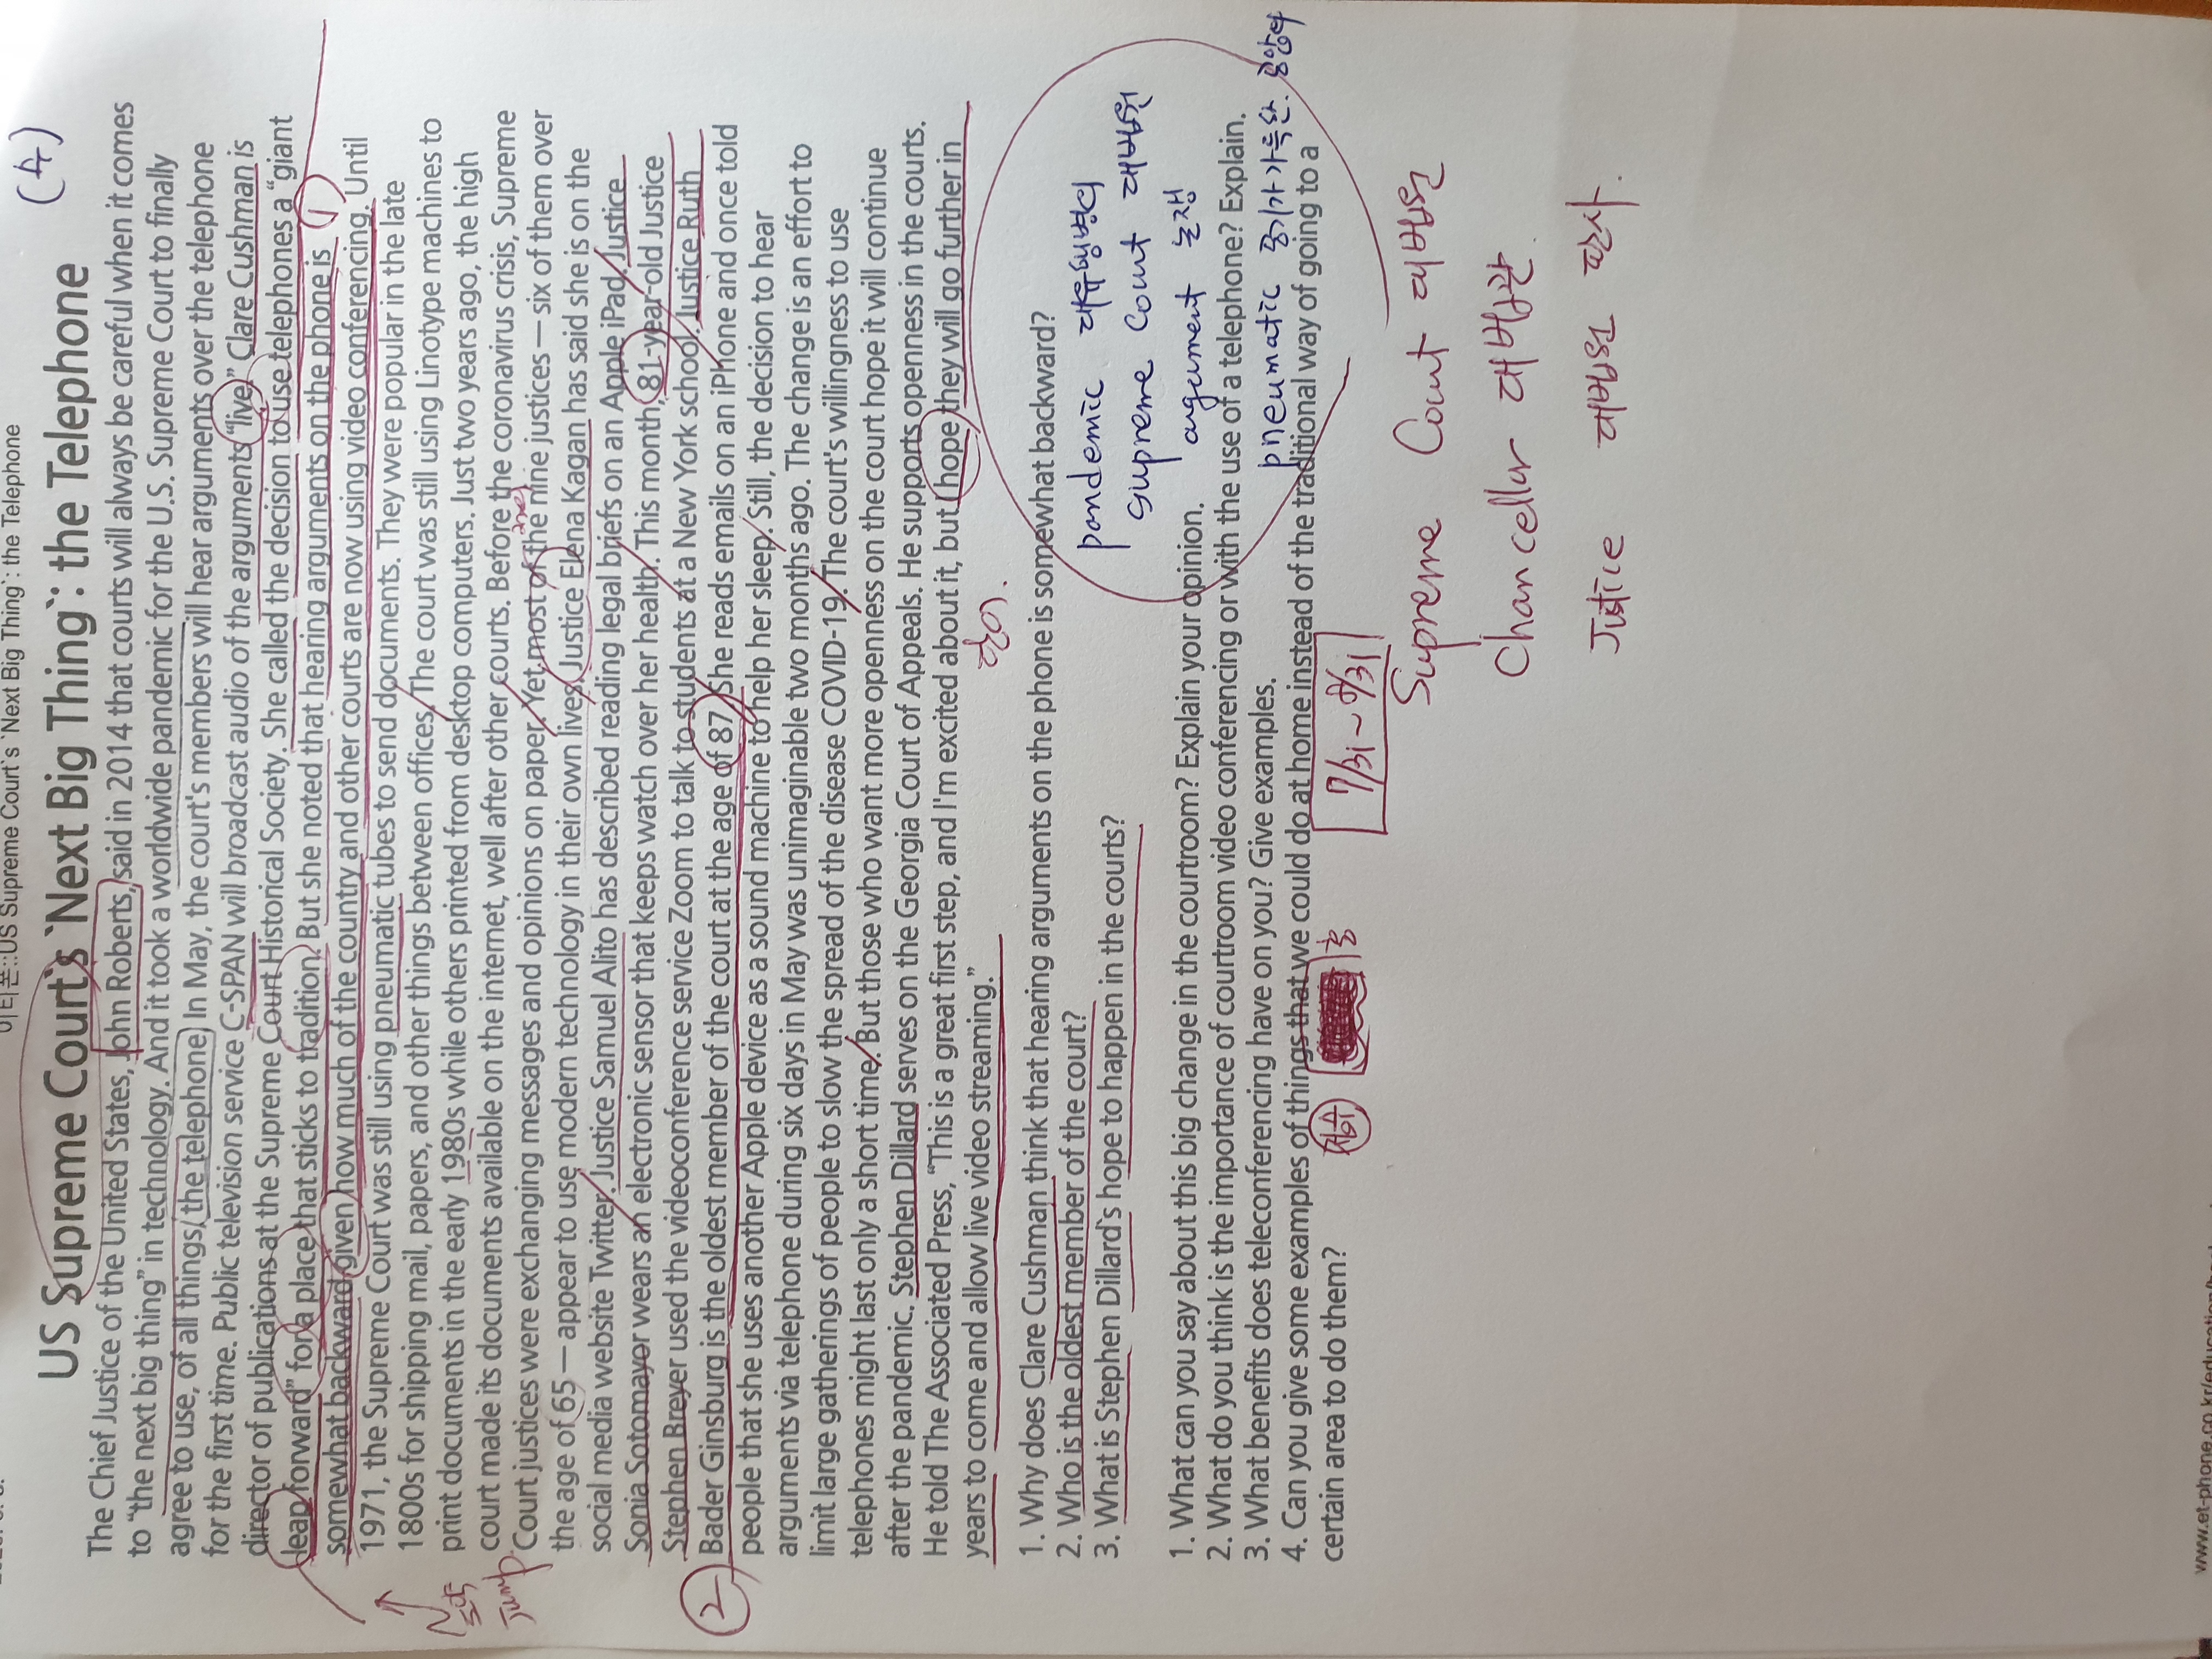 이티폰::US Supreme Court`s `Next Big Thing`: the Telephone
(수)
US Supreme Court`s `Next Big Thing`: the Telephone
The Chief Justice of the United States, John Roberts, said in 2014 that courts will always be careful when it comes
to “the next big thing” in technology. And it took a worldwide pandemic for the U.S. Supreme Court to finally
agree to use, of all things, the telephone. In May, the court's members will hear arguments over the telephone
for the first time. Public television service C-SPAN will broadcast audio of the arguments “live.” Clare Cushman is
director of publications at the Supreme Court Historical Society. She called the decision to use telephones a “giant
leap forward” for a place that sticks to tradition. But she noted that hearing arguments on the phone is
somewhat backward given how much of the country and other courts are now using video conferencing. Until
1971, the Supreme Court was still using pneumatic tubes to send documents. They were popular in the late
1800s for shipping mail, papers, and other things between offices. The court was still using Linotype machines to
print documents in the early 1980s while others printed from desktop computers. Just two years ago, the high
court made its documents available on the internet, well after other courts. Before the coronavirus crisis, Supreme
Court justices were exchanging messages and opinions on paper. Yet most of the nine justices — six of them over
the age of 65 — appear to use modern technology in their own lives. Justice Elena Kagan has said she is on the
social media website Twitter. Justice Samuel Alito has described reading legal briefs on an Apple iPad. Justice
Sonia Sotomayor wears an electronic sensor that keeps watch over her health. This month, 81-year-old Justice
Stephen Breyer used the videoconference service Zoom to talk to students at a New York school. Justice Ruth
Bader Ginsburg is the oldest member of the court at the age of 87. She reads emails on an iPhone and once told
people that she uses another Apple device as a sound machine to help her sleep. Still, the decision to hear
arguments via telephone during six days in May was unimaginable two months ago. The change is an effort to
limit large gatherings of people to slow the spread of the disease COVID-19. The court's willingness to use
telephones might last only a short time. But those who want more openness on the court hope it will continue
after the pandemic. Stephen Dillard serves on the Georgia Court of Appeals. He supports openness in the courts.
He told The Associated Press, “This is a great first step, and I'm excited about it, but I hope they will go further in
years to come and allow live video streaming.”
1
2
jump
1. Why does Clare Cushman think that hearing arguments on the phone is somewhat backward?
2. Who is the oldest member of the court?
3. What is Stephen Dillard`s hope to happen in the courts?
pandemic 대유행병의
supreme Court 대법원
argument 논쟁
pneumatic 공기가 가득한. 공압의
1. What can you say about this big change in the courtroom? Explain your opinion.
2. What do you think is the importance of courtroom video conferencing or with the use of a telephone? Explain.
3. What benefits does teleconferencing have on you? Give examples.
4. Can you give some examples of things that we could do at home instead of the traditional way of going to a
certain area to do them?
7/31 ~ 8/31
Supreme Court 대법원
Chancellor 대법관.
Justice 대법원 판사.
www.et-phone.co.kr/education/